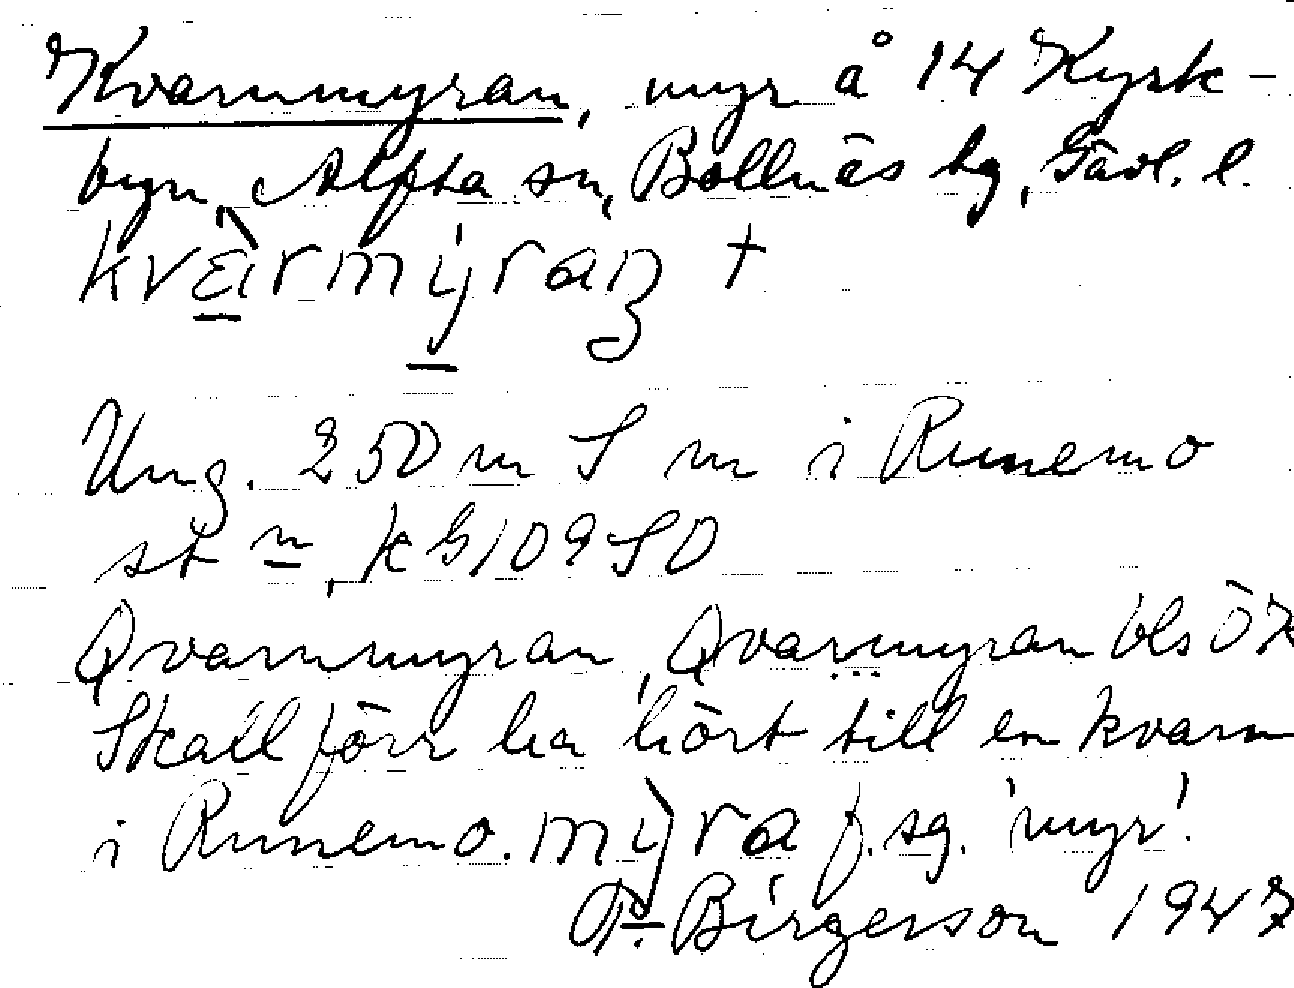 Kvarnmyran, myr å 14 Kyrk-
byn, Alfta sn, Bollnäs tg, Gävl. l.
kvà̱rmy̱ran +
Ung. 250 m S m i Runemo
st m, k G 109 SO
Qvarnmyran, Qvarnmyran bls ÖK
Skall förr ha hört till en kvarn
i Runemo. mỳ̱ra f. sg. 'myr'.
P. Birgerson 1947